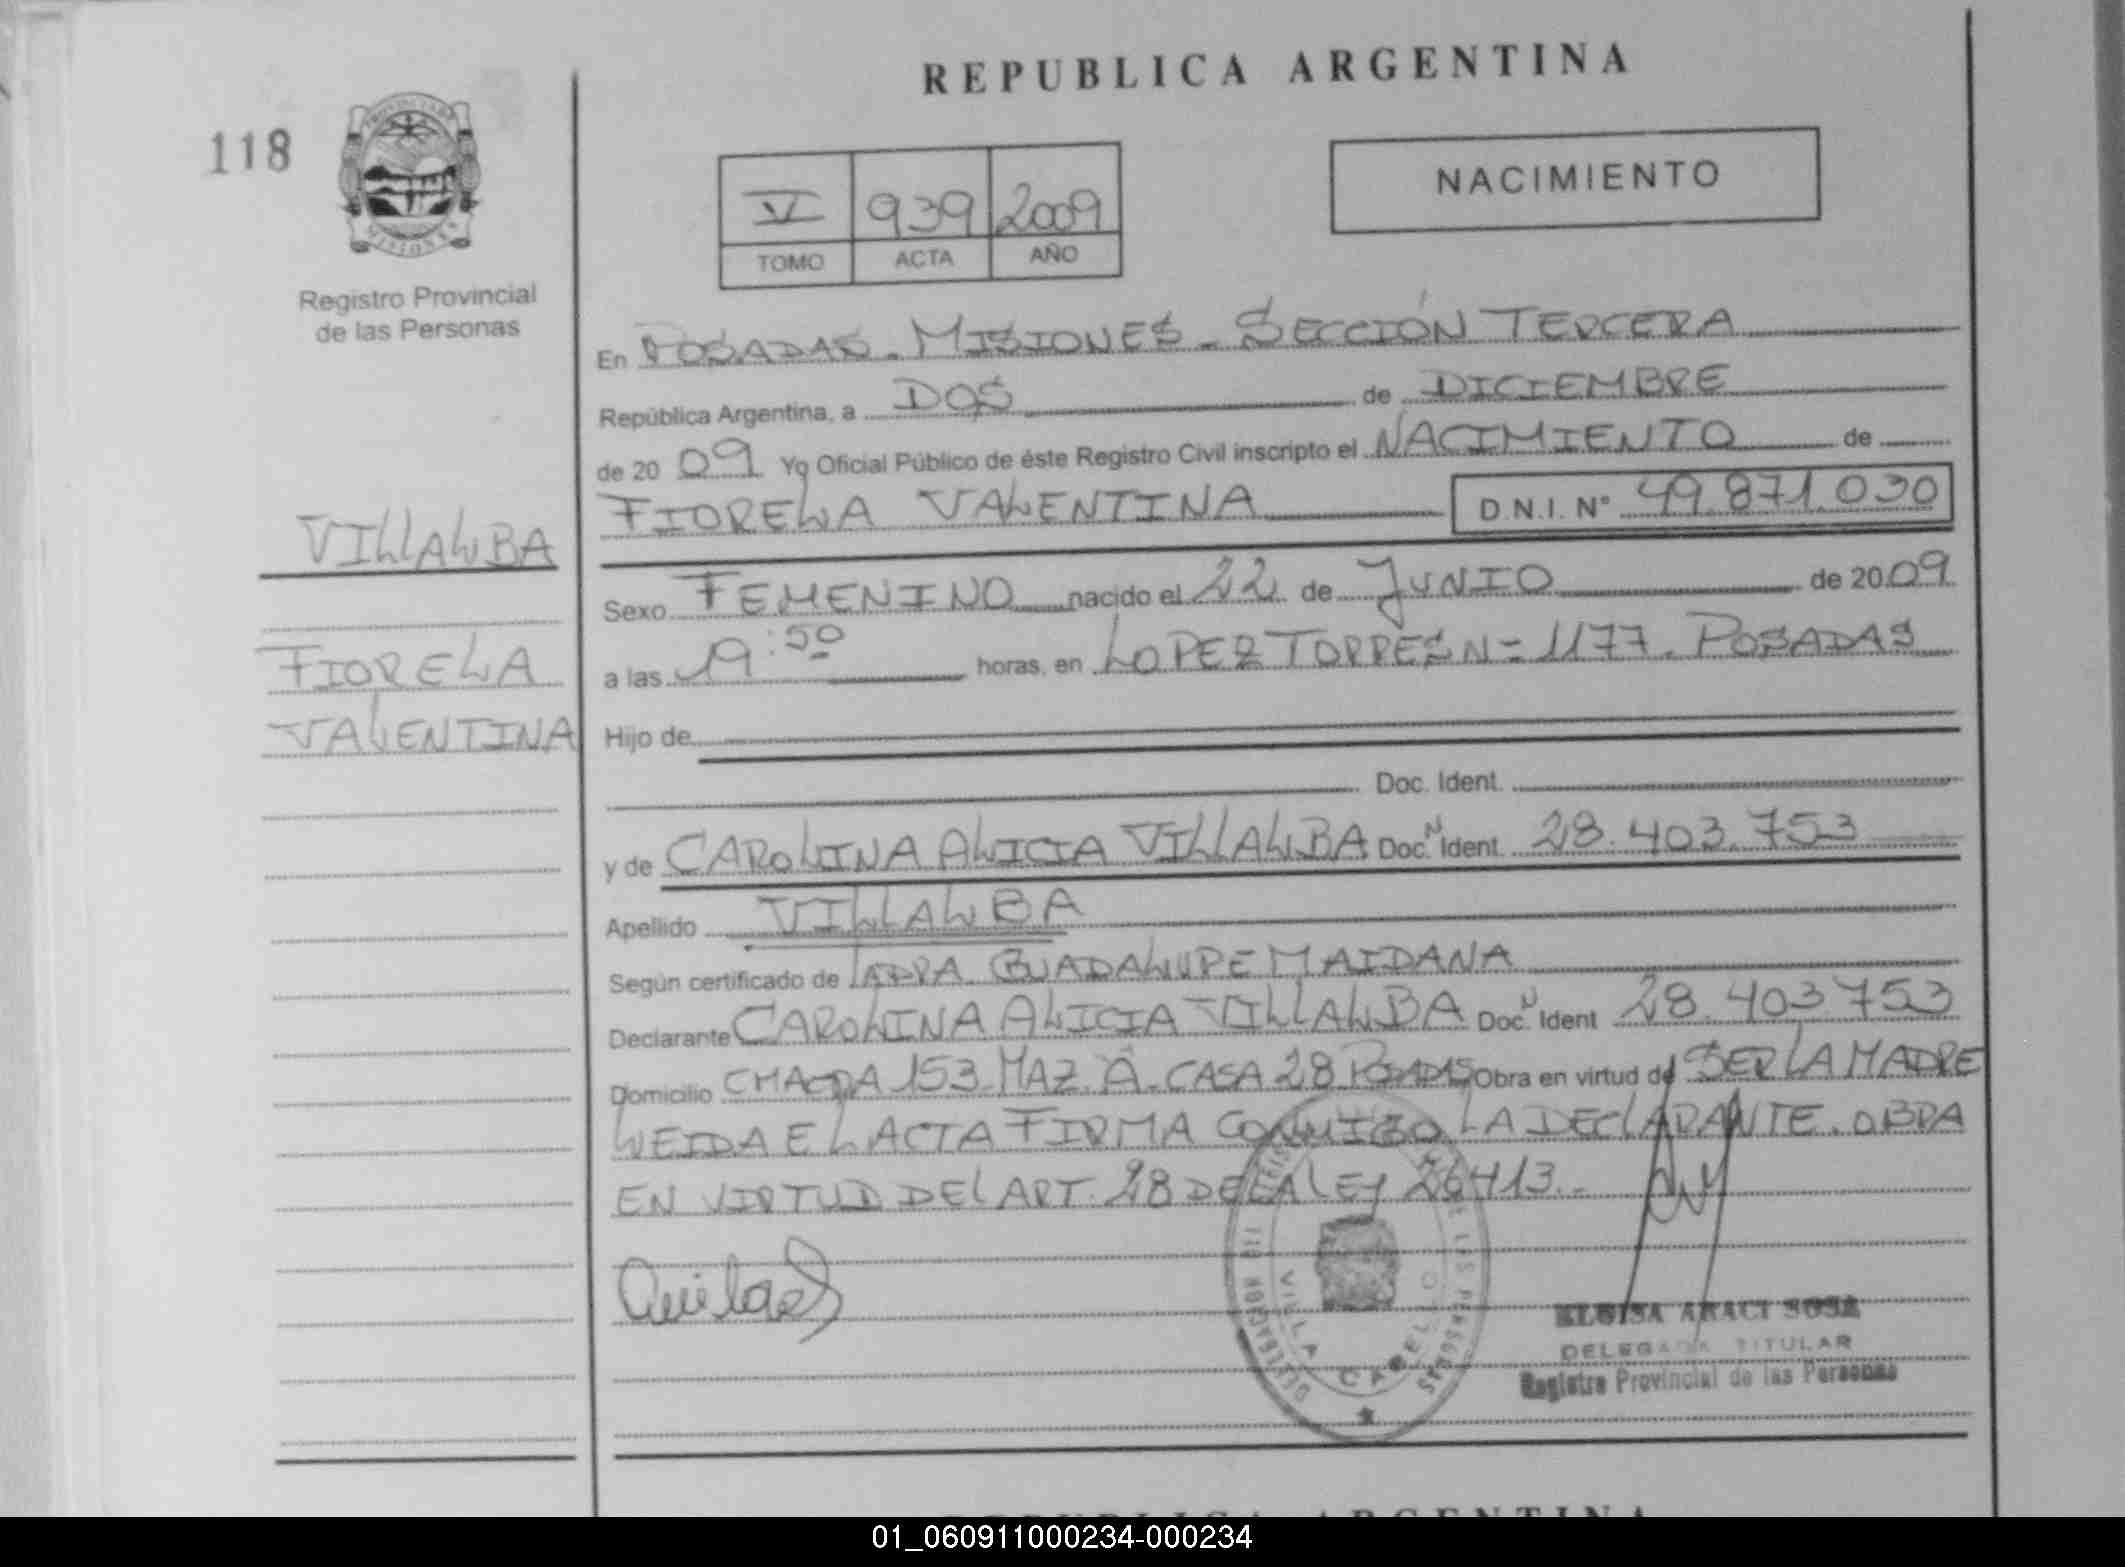 REPUBLICA ARGENTINA
118
PROVINCIA DE
MISIONES
Registro Provincial
de las Personas
NACIMIENTO
V 939 2009
TOMO ACTA AÑO
En POSADAS - MISIONES - SECCIÓN TERCERA
República Argentina, a DOS de DICIEMBRE
de 20 09 Yo Oficial Público de éste Registro Civil inscripto el NACIMIENTO de
FIORELLA VALENTINA D.N.I. Nº 49.871.030
VILLALBA
FIORELLA
VALENTINA
Sexo FEMENINO nacido el 22 de JUNIO de 2009
a las 19:50 horas, en LOPEZ TORRES N= 1177. POSADAS
Hijo de
Doc. Ident.
y de CAROLINA ALICIA VILLALBA Doc. N Ident. 28.403.753
Apellido VILLALBA
Según certificado de GUADALUPE MAIDANA
Declarante CAROLINA ALICIA VILLALBA Doc. N Ident 28.403.753
Domicilio CHACRA 153 MAZ. A. CASA 28 POSADAS Obra en virtud de SER LA MADRE
LEIDA EL ACTA FIRMA CONMIGO LA DECLARANTE. OBRA
EN VIRTUD DEL ART. 28 DE LA LEY 26413.-
VILLA CABELLO
ELOISA ARACI SOSA
DELEGADA TITULAR
Registro Provincial de las Personas
REPUBLICA ARGENTINA
01_060911000234-000234